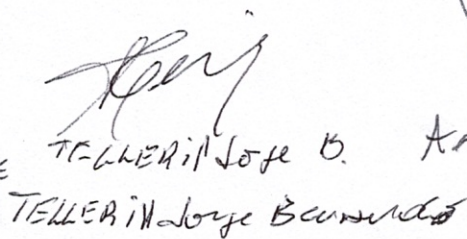 TELLERIA Jorge B. A
TELLERIA Jorge Bernardo